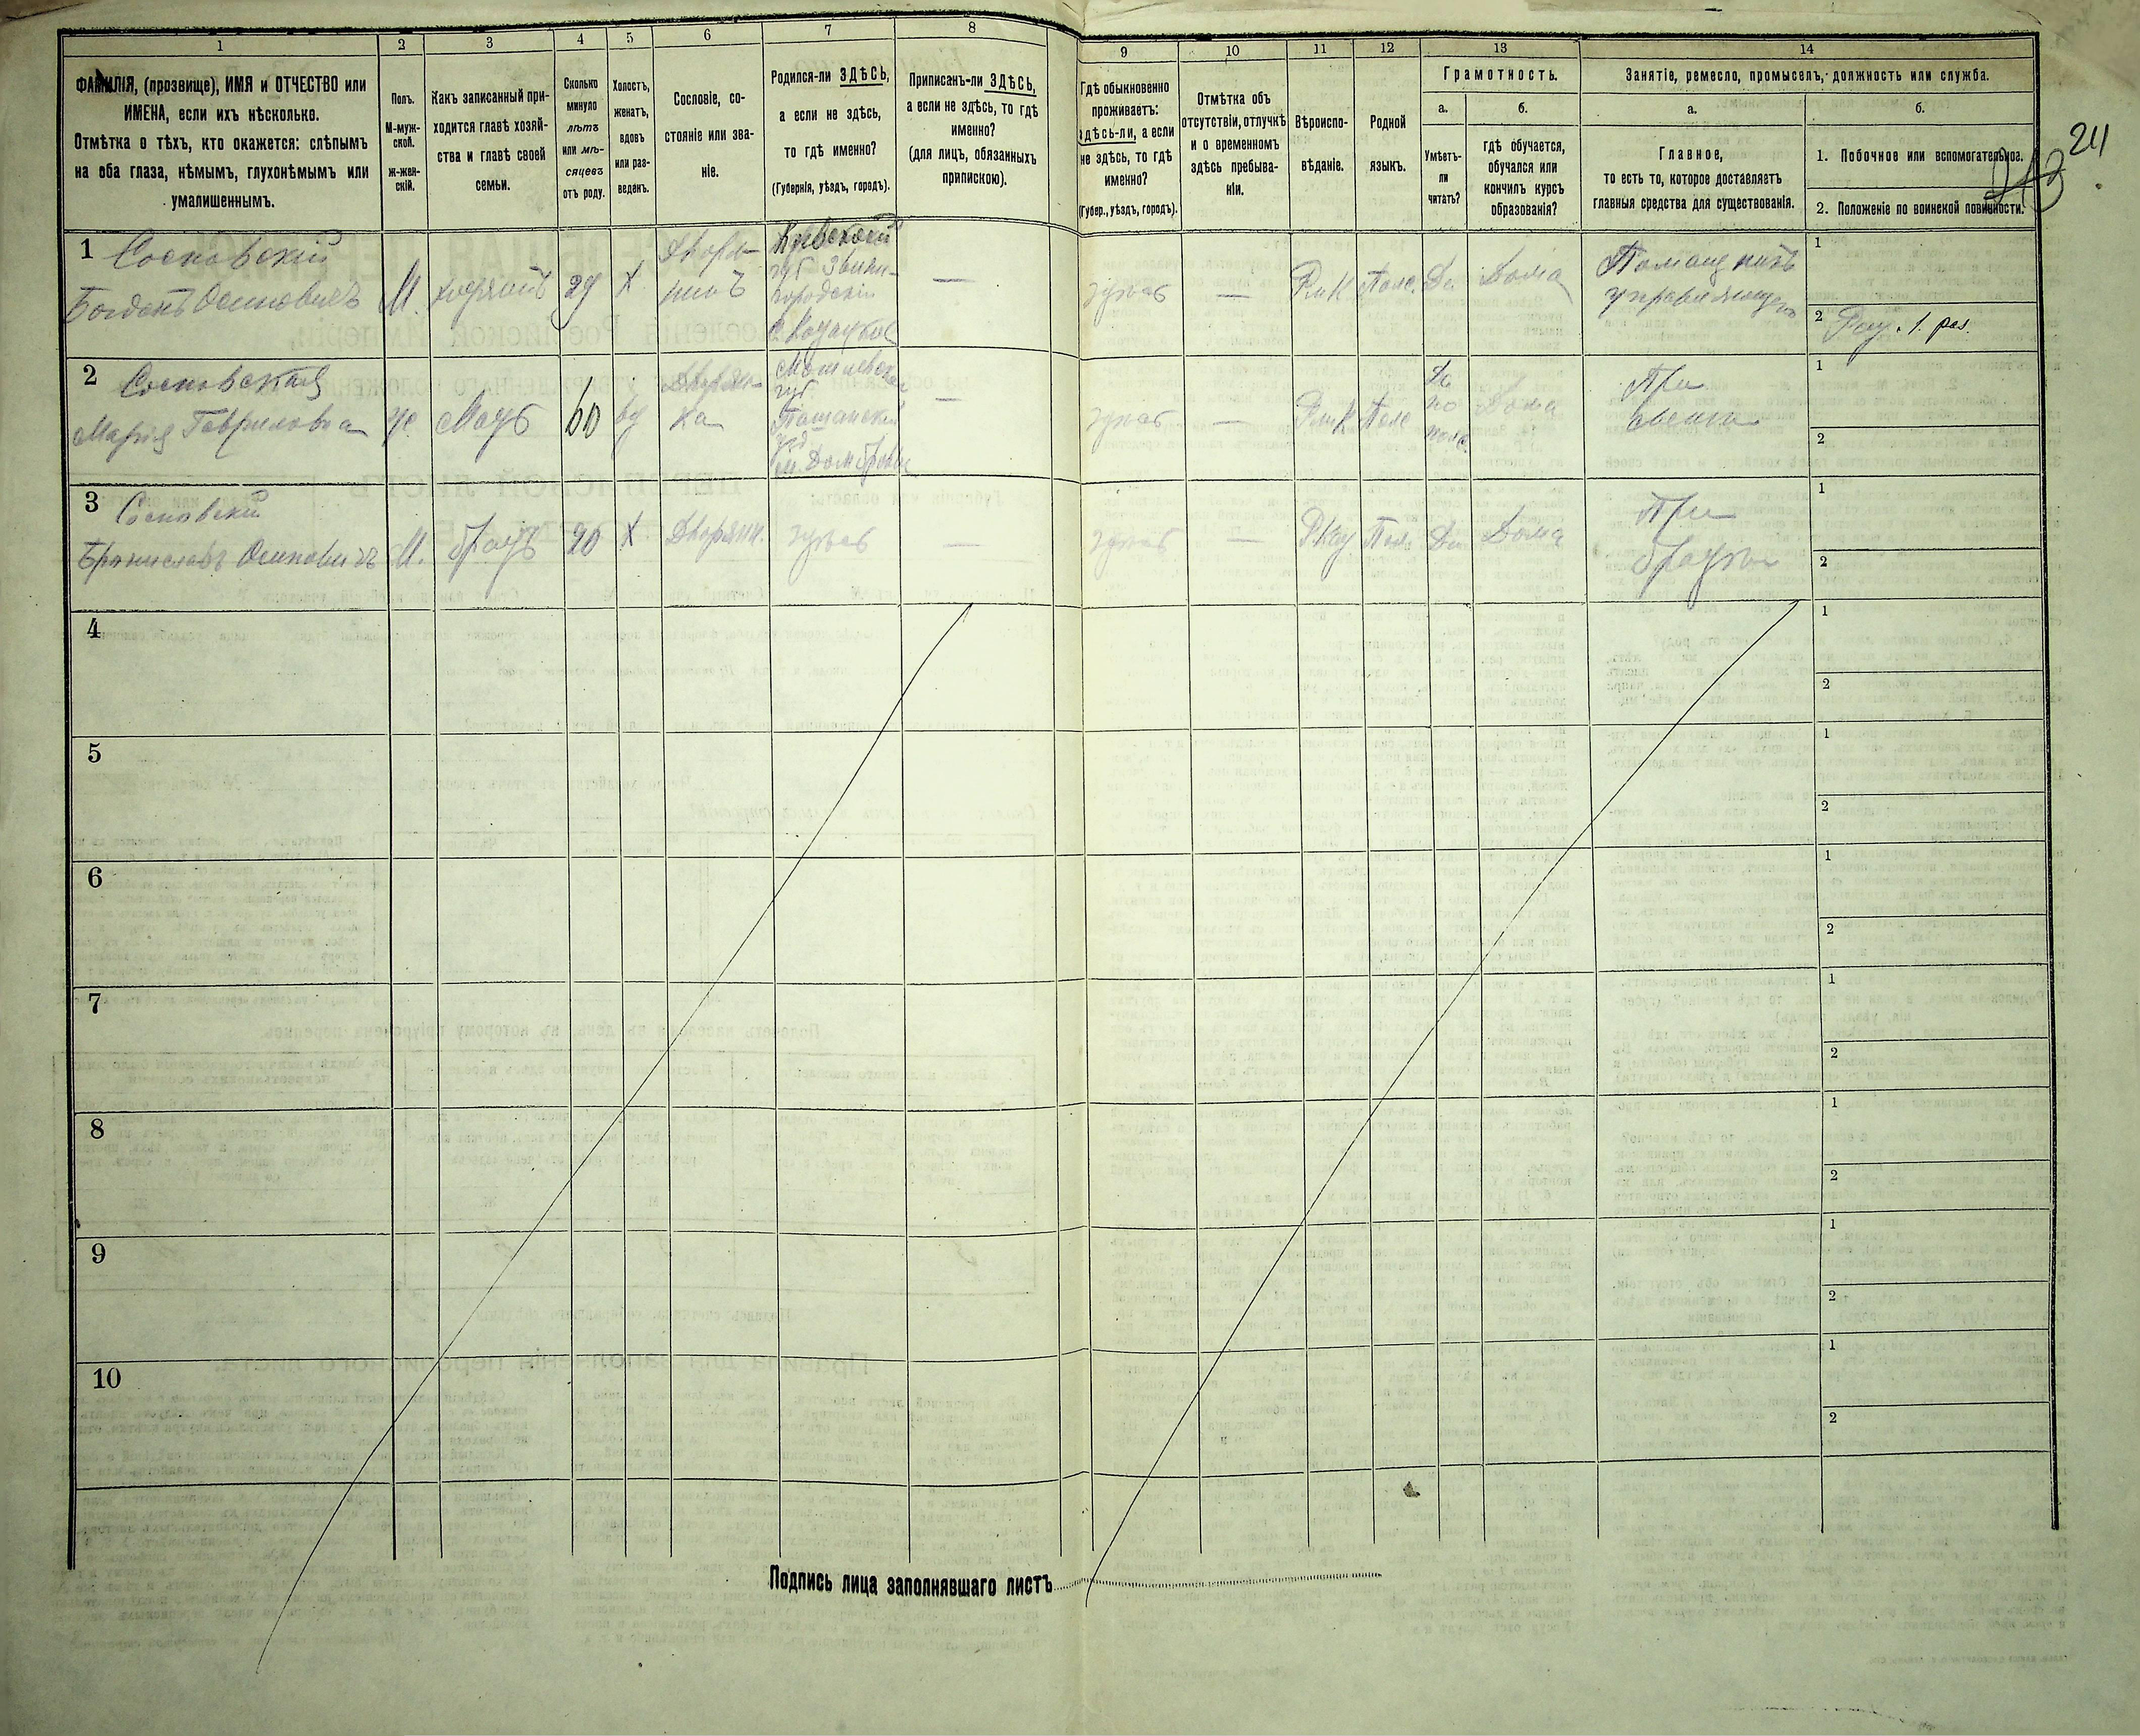 1
2
3
4
5
6
7
8
9
10
11
12
13
14
ФАМИЛІЯ, (прозвище), ИМЯ и ОТЧЕСТВО или
ИМЕНА, если ихъ нѣсколько.
Отмѣтка о тѣхъ, кто окажется: слѣпымъ
на оба глаза, нѣмымъ, глухонѣмымъ или
умалишеннымъ.
Полъ.
М-муж-
ской.
ж-жен-
скій.
Какъ записанный при-
ходится главѣ хозяй-
ства и главѣ своей
семьи.
Сколько
минуло
лѣтъ
или мѣ-
сяцевъ
отъ роду.
Холостъ,
женатъ,
вдовъ
или раз-
веденъ.
Сословіе, со-
стояніе или зва-
ніе.
Родился-ли ЗДѢСЬ,
а если не здѣсь,
то гдѣ именно?
(Губернія, уѣздъ, городъ).
Приписанъ-ли ЗДѢСЬ,
а если не здѣсь, то гдѣ
именно?
(для лицъ, обязанныхъ
припискою).
Гдѣ обыкновенно
проживаетъ:
здѣсь-ли, а если
не здѣсь, то гдѣ
именно?
(Губер., уѣздъ, городъ).
Отмѣтка объ
отсутствіи, отлучкѣ
и о временномъ
здѣсь пребыва-
ніи.
Вѣроиспо-
вѣданіе.
Родной
языкъ.
Грамотность.
а.
б.
Умѣетъ-
ли
читать?
гдѣ обучается,
обучался или
кончилъ курсъ
образованія?
Занятіе, ремесло, промыселъ, должность или служба.
а.
б.
Главное,
то есть то, которое доставляетъ
главныя средства для существованія.
1. Побочное или вспомогательное.
2. Положеніе по воинской повинности.
24
1 Сосновскій
Богданъ Осиповичъ
М.
хозяинъ
Х
Дворя-
нинъ
Кіевской
губ Звени-
городскій
—
здѣсь
—
Р к К
Польс.
Да
Дома
Помощникъ
управляющаго
1
2
1 раз.
2 Сосновская
Марія Гавриловна
Ж.
Мать
60
вд
Дворян-
ка
Могилевская
губ.
—
здѣсь
—
Польс
Да
по
польс.
Дома
При
сынѣ
1
2
3 Сосновскій
Брониславъ Осиповичъ
М.
братъ
20
Х
Дворянин.
здѣсь
—
здѣсь
—
Пол.
Да
Дома
При
братѣ
1
2
4
1
2
5
1
2
6
1
2
7
1
2
8
1
2
9
1
2
10
1
2
Подпись лица заполнявшаго листъ